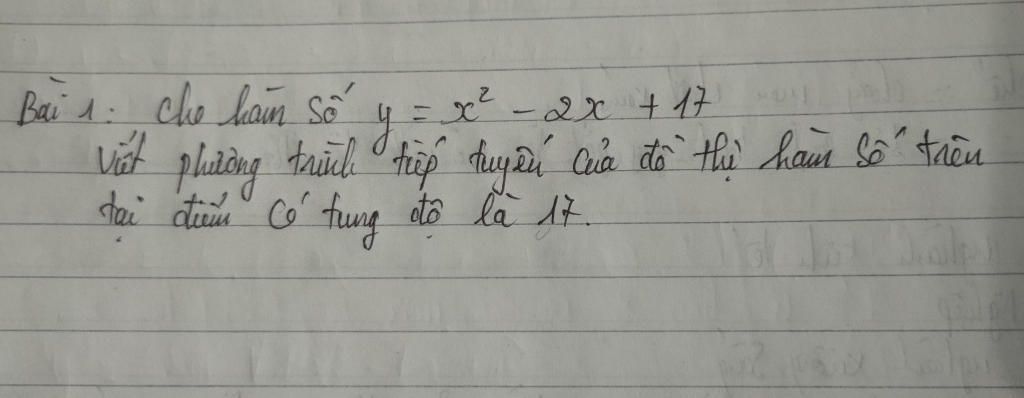 Bài 1: Cho hàm số y = x² - 2x + 17
Viết phương trình tiếp tuyến của đồ thị hàm số trên
tại điểm có tung độ là 17.